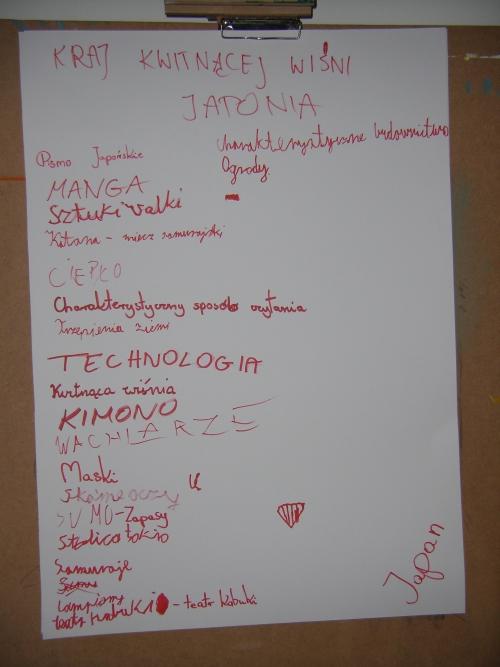 KRAJ KWITNĄCEJ WIŚNI
JAPONIA
Pismo Japońskie
charakterystyczne budownictwo
Ogrody
MANGA
Sztuki walki
Katana - miecz samurajski
CIEPŁO
Charakterystyczny sposób czytania
Trzęsienia ziemi
TECHNOLOGIA
Kwitnąca wiśnia
KIMONO
WACHLARZE
Maski
skośne oczy
SUMO-Zapasy
Stolica tokio
Samuraje
Lampiony
teatr kabuki - teatr kabuki
Japan